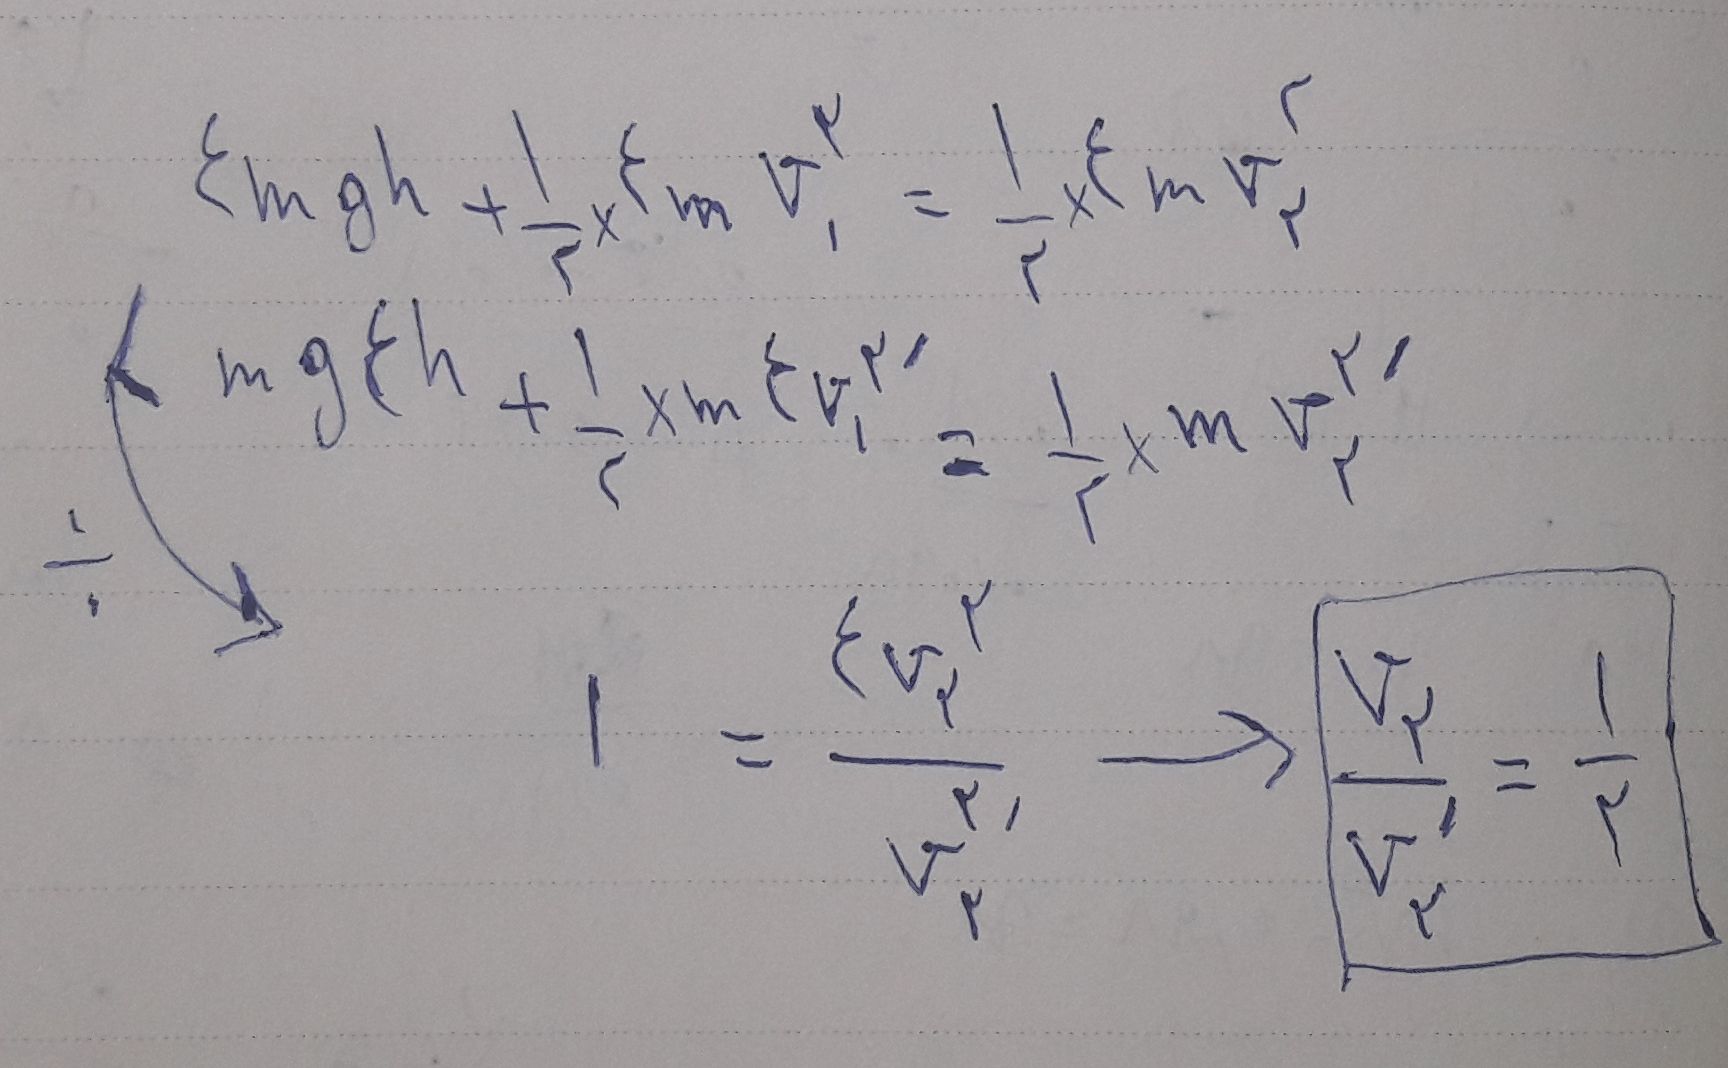 ۴mgh + ۱/۲ × ۴m V₁^۲ = ۱/۲ × ۴ m V_۲^۲
mg۴h + ۱/۲ × m ۴V_۱^۲′ = ۱/۲ × m V_۲^۲′
÷
۱ = ۴V_۲^۲ / V_۲^۲′ → V_۲ / V_۲′ = ۱/۲